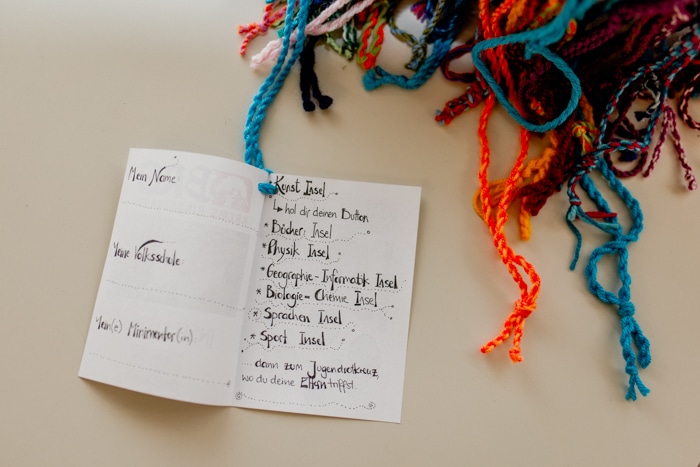 Mein Name:
Meine Volksschule:
Mein(e) Minimentor(in):
* Kunst Insel
↳ hol dir deinen Button
* Bücher Insel
* Physik Insel
* Geographie-Informatik Insel
* Biologie-Chemie Insel
* Sprachen Insel
* Sport Insel
dann zum Jugendrotkreuz,
wo du deine Eltern triffst.